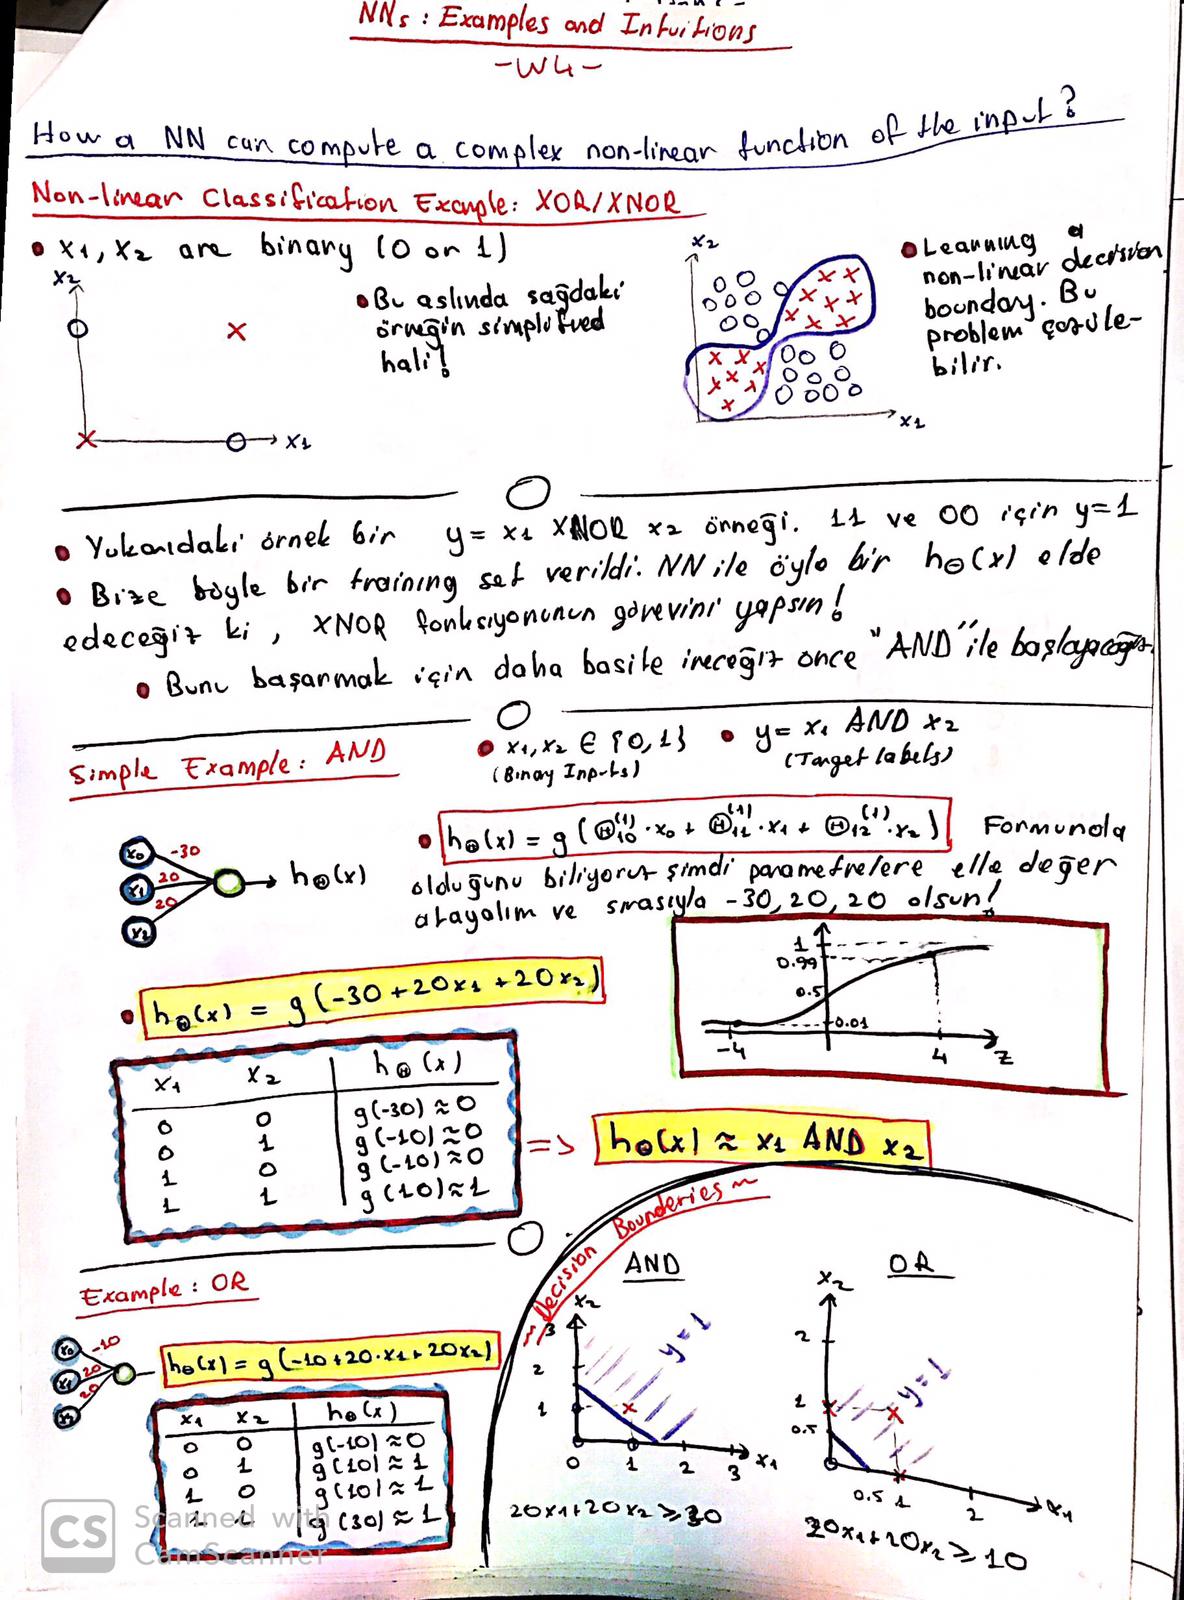 NNs : Examples and Intuitions
-W4-
How a NN can compute a complex non-linear function of the input?
Non-linear Classification Example: XOR/XNOR
x1, x2 are binary (0 or 1)
x2
x1
Bu aslında sağdaki
örneğin simplified
hali!
x2
x1
Learning a
non-linear decision
boundary. Bu
problem çözüle-
bilir.
Yukarıdaki örnek bir y = x1 XNOR x2 örneği. 11 ve 00 için y=1
Bize böyle bir training set verildi. NN ile öyle bir hΘ(x) elde
edeceğiz ki, XNOR fonksiyonunun görevini yapsın!
Bunu başarmak için daha basite ineceğiz önce "AND" ile başlayacağız.
Simple Example: AND
x1, x2 ∈ {0,1}
(Binary Inputs)
y = x1 AND x2
(Target labels)
x0 -30
x1 20
x2 20
hΘ(x)
hΘ(x) = g(Θ10^(1)·x0 + Θ11^(1)·x1 + Θ12^(1)·x2) Formunda
olduğunu biliyoruz şimdi parametrelere elle değer
atayalım ve sırasıyla -30, 20, 20 olsun!
hΘ(x) = g(-30+20x1+20x2)
1
0.99
0.5
0.01
-4 4 z
x1 x2 hΘ(x)
0 0 g(-30) ≈ 0
0 1 g(-10) ≈ 0
1 0 g(-10) ≈ 0
1 1 g(10) ≈ 1
=> hΘ(x) ≈ x1 AND x2
Example: OR
x0 -10
x1 20
x2 20
hΘ(x) = g(-10+20·x1+20x2)
x1 x2 hΘ(x)
0 0 g(-10) ≈ 0
0 1 g(10) ≈ 1
1 0 g(10) ≈ 1
1 1 g(30) ≈ 1
~ Decision Bounderies ~
AND
x2
3
2
1
0 1 2 3 x1
y=1
20x1+20x2 ≥ 30
OR
x2
2
1
0.5
0.5 1 2 x1
y=1
20x1+20x2 ≥ 10
CS
Scanned with
CamScanner